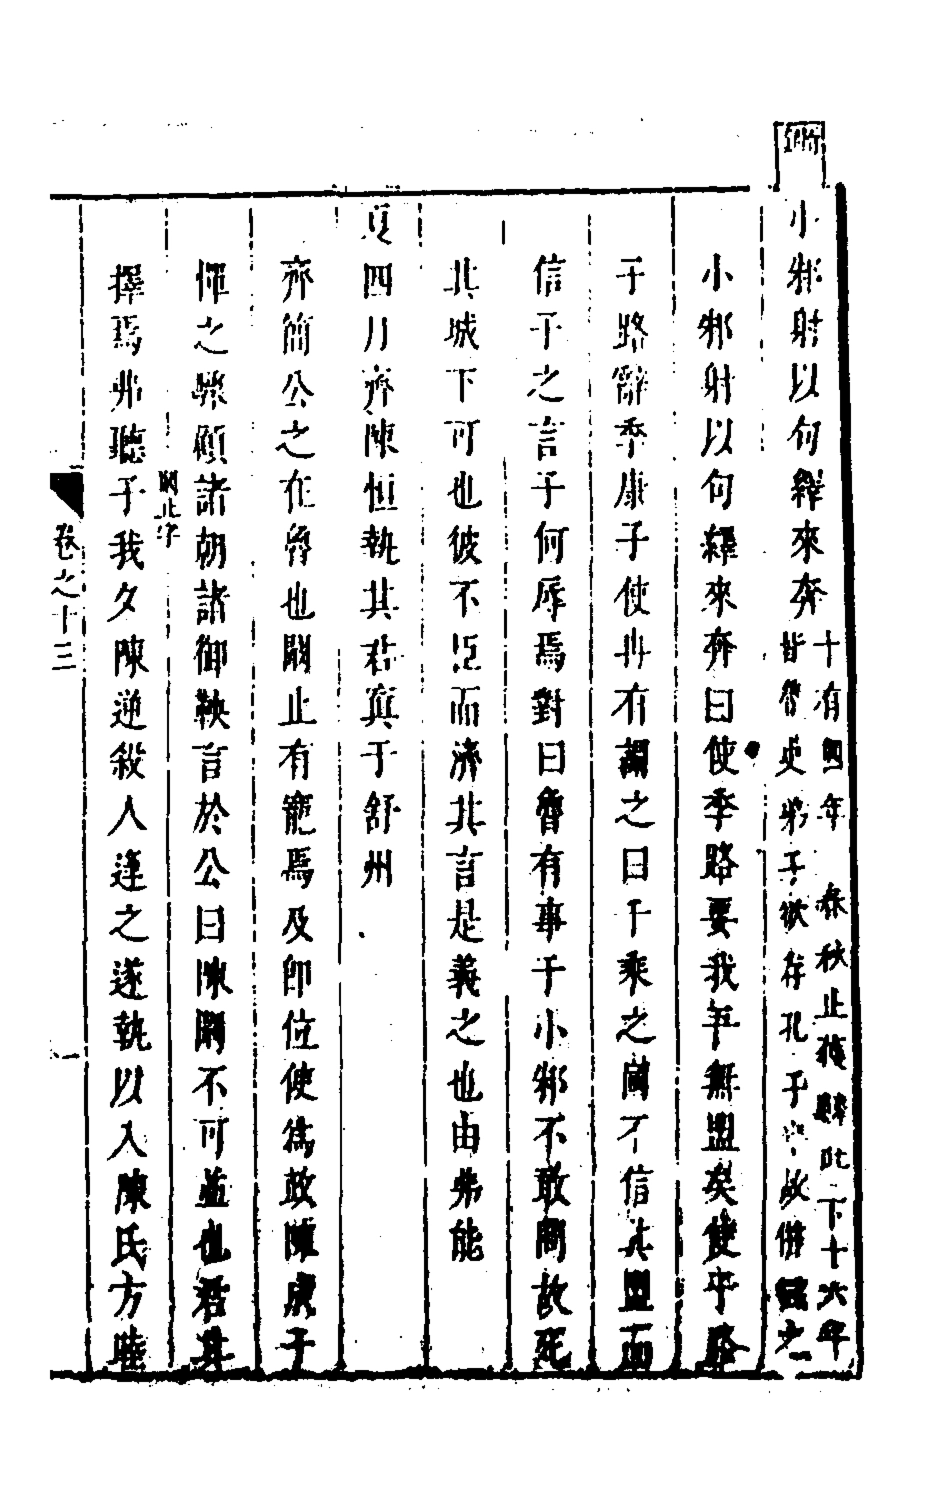 小邾射以句繹來奔十有四年　春秋止獲麟此下十六年
皆魯史弟子欲存孔子卒故併錄之
小邾射以句繹來奔曰使季路要我吾無盟矣使子路
子路辭季康子使冉有謂之曰千乘之國不信其盟而
信子之言子何辱焉對曰魯有事于小邾不敢問故死
其城下可也彼不臣而濟其言是義之也由弗能
夏四月齊陳恒執其君寘于舒州
齊簡公之在魯也闞止有寵焉及即位使為政陳成子
憚之驟顧諸朝諸御鞅言於公曰陳闞不可並也君其
闞止字
擇焉弗聽子我夕陳逆殺人逢之遂執以入陳氏方睦
卷之十三
一